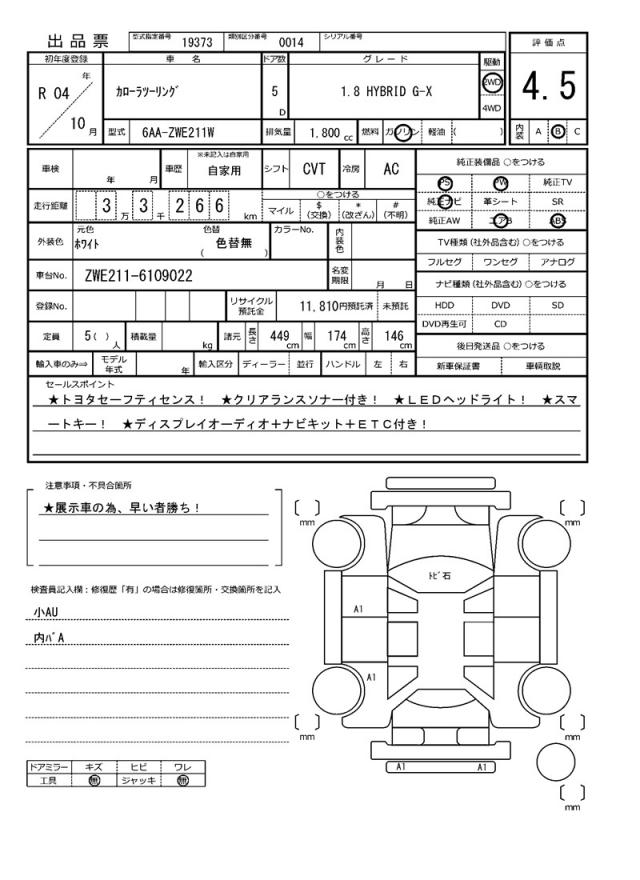 出品票 型式指定番号 19373 類別区分番号 0014 シリアル番号
評価点
4.5
初年度登録 車名 ドア数 グレード 駆動
R 04 年 10 月
カローラツーリング 5 D 1.8 HYBRID G-X 2WD
4WD
型式 6AA-ZWE211W 排気量 1.800 cc 燃料 ガソリン 軽油 ( )
内装 A B C
車検 年 月 車歴 ※未記入は自家用 自家用 シフト CVT 冷房 AC
純正装備品 ○をつける
PS PW 純正TV
純正ナビ 革シート SR
純正AW エアB ABS
走行距離 3 万 3 千 2 6 6 km
○をつける
マイル $(交換) *(改ざん) #(不明)
外装色 元色 ホワイト 色替 色替無 ( ) カラーNo. 内装色
TV種類(社外品含む)○をつける
フルセグ ワンセグ アナログ
車台No. ZWE211-6109022 名変期限 月 日
ナビ種類(社外品含む)○をつける
HDD DVD SD
DVD再生可 CD
登録No. リサイクル預託金 11,810円預託済 未預託
定員 5( )人 積載量 kg 諸元 長さ 449 cm 幅 174 cm 高さ 146 cm
後日発送品 ○をつける
新車保証書 車輌取説
輸入車のみ⇒ モデル年式 年 輸入区分 ディーラー 並行 ハンドル 左 右
セールスポイント
★トヨタセーフティセンス! ★クリアランスソナー付き! ★LEDヘッドライト! ★スマ
ートキー! ★ディスプレイオーディオ+ナビキット+ETC付き!
注意事項・不具合箇所
★展示車の為、早い者勝ち!
検査員記入欄:修復歴「有」の場合は修復箇所・交換箇所を記入
小AU
内バA
ドアミラー キズ ヒビ ワレ
工具 無 ジャッキ 無
mm
mm
トビ石
A1
A1
mm
mm
A1 A1
mm